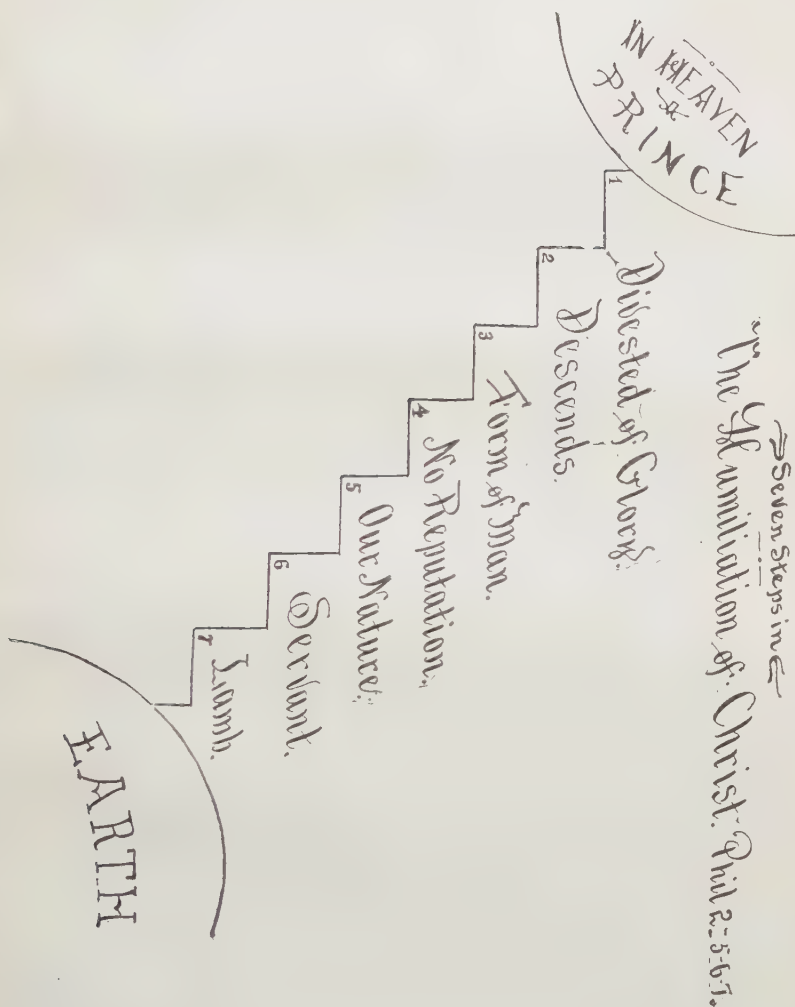 Seven Steps in
The Humiliation of Christ. Phil 2-5-6-7.
IN HEAVEN
A
PRINCE
1
Divested of Glory.
2
Descends.
3
Form of Man.
4
No Reputation.
5
Our Nature.
6
Servant.
7
Lamb.
EARTH